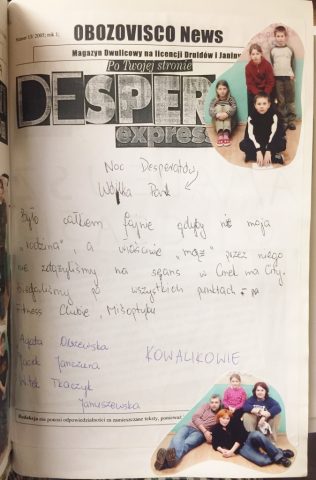 Numer 13/ 2005; rok 1;
OBOZOVISCO NEWS
Magazyn Dwulicowy na licencji Druidów i
Po Twojej stronie
DESPER
express
Noc Desperatów
Wojtka Park
Było całkiem fajnie gdyby nie moja
"rodzina", a właściwie "mąż" przez niego
nie zdążyliśmy na seans w Cinema City.
Biegaliśmy po wszystkich punktach - po
Fitness Clubie,
Agata
Jacek
Witek Tkaczyk
Januszewska
KOWALIKOWIE
Redakcja nie ponosi odpowiedzialności za zamieszczane teksty, ponieważ